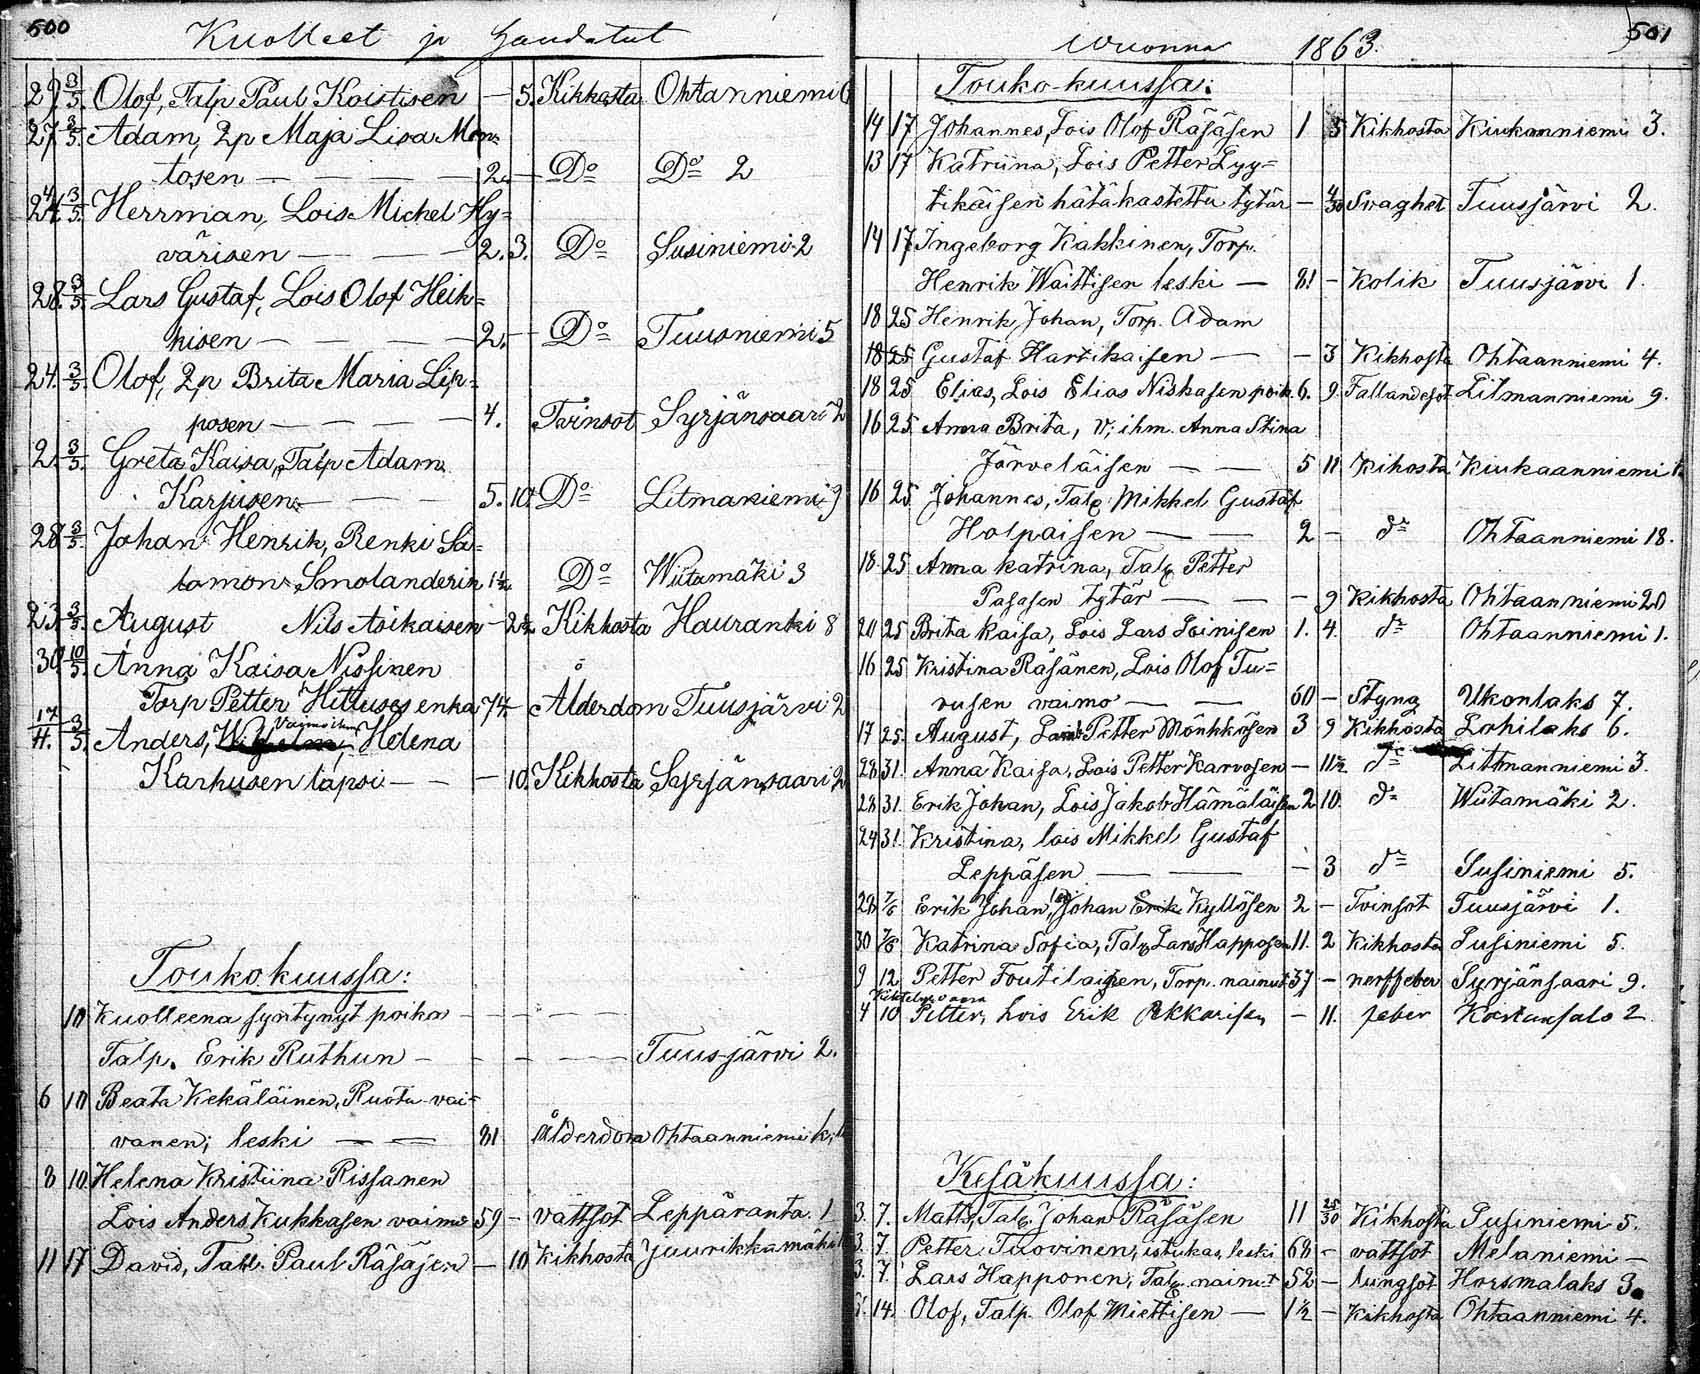 500
Kuolleet ja Haudatut
29. 3/5. Olof, Talp Paul Koistisen — 5. Kikhosta Ohtanniemi 6
27. 3/5. Adam, 2p Maja Lisa Mon=
tosen — — — — 2. — Do Do 2
24/4. 3/5. Herrman, Lois Michel Hy=
värisen — — — 2. 3. Do Susiniemi 2
28. 3/5. Lars Gustaf, Lois Olof Heik=
kisen — — — — 2. — Do Tuusniemi 5
24. 3/5. Olof, 2p Brita Maria Lip=
posen — — — — 4. Torinsot Syrjänsaari 2
2. 3/5. Greta Kaisa, Talp Adam
Karjusen — — — 5. 10. Do Litmaniemi 9
28. 3/5. Johan Henrik, Renki Sa=
lomon Smolanderin 1½ Do Wiitamäki 3
23. 3/5. August Nils Asikaisen — 2½ Kikhosta Hauranki 8
30. 10/5. Anna Kaisa Nissinen
Torp Petter Hittuses enka 74. — Ålderdom Tuusjärvi 2
17/4. 3/5. Anders, Vaimoihm Helena
Karhusen lapsi — — — 10. Kikhosta Syrjänsaari 2
Toukokuussa:
10 Kuolleena syntynyt poika — — — —
Talp. Erik Ruthun — — — — Tuusjärvi 2.
6 10 Beata Kekäläinen, Ruotu-vai=
vanen, leski — — 81 Ålderdom Ohtaanniemi k,
8 10. Helena Kristiina Rissanen
Lois Anders Kukkasen vaimo 59 — vattsot Leppäranta. 1
11 17 David, Talli. Paul Räsäsen — 10 Kikhosta Juurikkamäki
wuonna 1863. 501
Touko-kuussa:
14 17 Johannes, Lois Olof Räsäsen 1 5 Kikhosta Kiukonniemi 3.
13 17 Katriina, Lois Petter Lyy=
tikäisen hätäkastettu tytär — 4/30 Svaghet Tuusjärvi 2.
14 17 Ingeborg Kakkinen, Torp.
Henrik Waittisen leski — 81 — Kolik Tuusjärvi 1.
18 25 Henrik Johan, Torp. Adam
18 25 Gustaf Hartikaisen — — 3 Kikhosta Ohtaanniemi 4.
18 25 Elias, Lois Elias Niskasen poik. 6. 9. Fallandesot Litmanniemi 9.
16 25 Anna Brita, v; ihm. Anna Stina
Järveläisen — — 5 11 Kihosta Kiukaanniemi
16 25 Johannes, Talp Mikkel Gustaf
Holpaisen — — 2 — do Ohtaanniemi 18.
18 25 Anna katrina, Talp Petter
Pasasen tytär — — — 9 Kikhosta Ohtaanniemi 20
20 25 Brita kaisa, Lois Lars Loinisen 1. 4. do Ohtaanniemi 1.
16 25 Kristina Räsänen, Lois Olof Tu=
rusen vaimo — — 60 — Styng Ukonlaks 7.
17 25. August, Petter Mönkkösen 3 9 Kikhosta Lohilaks 6.
28 31. Anna Kaisa, Lois Petter Karvosen — 11½ do Litmanniemi 3.
28 31. Erik Johan, Lois Jakob Hämäläisen 2 10. do Wiitamäki 2.
24 31. Kristina, lois Mikkel Gustaf
Leppäsen — — — 3 do Susiniemi 5.
28 7/6 Erik Johan, Johan Erik Kyllösen 2 — Tvinsot Tuusjärvi 1.
30 7/6 Katrina Sofia, Talp Lars Happosen 11. 2 Kikhosta Susiniemi 5.
9 12 Petter Foutilaisen, Torp. nainut 37 — nerffeber Syrjänsaari 9.
4 10 Petter, Lois Erik Pekkarisen — 11. feber Kartunsalo 2
Kesäkuussa:
3. 7. Matts, Talp. Johan Räsäsen 11 25/30 Kikhosta Susiniemi 5.
3. 7. Petter Tuovinen, istukas, leski 68 — vattsot Melaniemi —
3. 7. Lars Happonen, Talp. nainut 52 — lungsot Horsmalaks 3.
14. Olof, Talp. Olof Miettisen — 1½ — Kikhosta Ohtaanniemi 4.